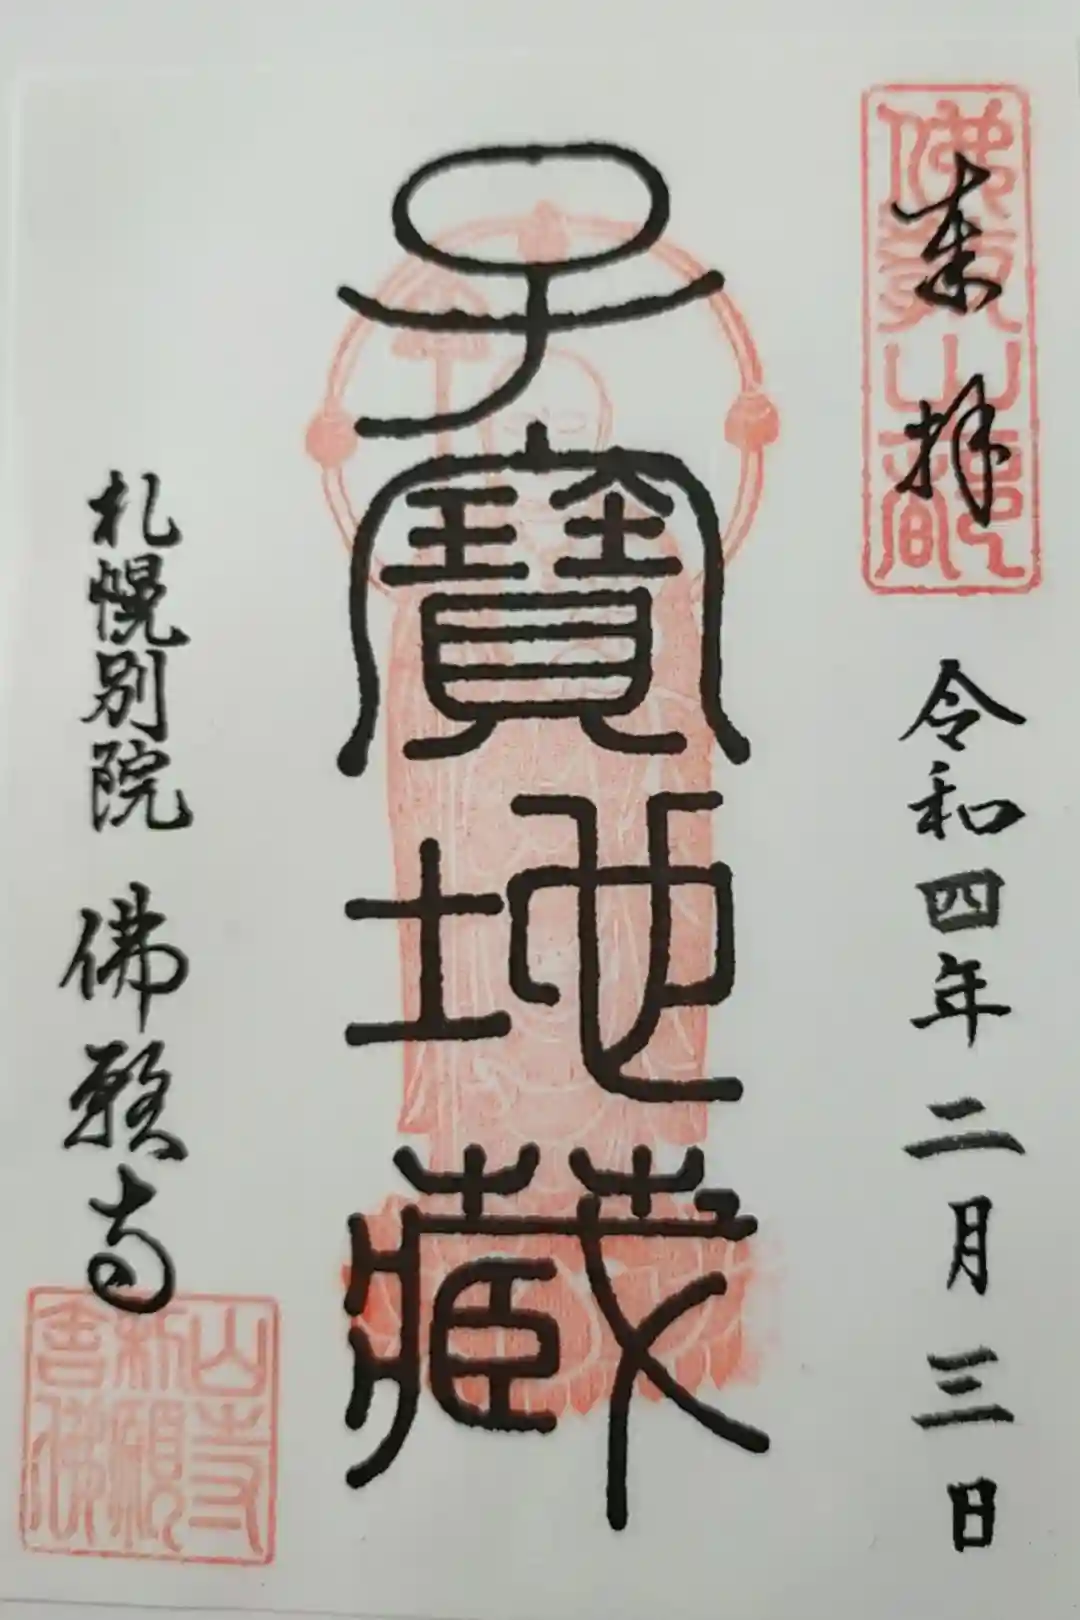 奉拝
令和四年二月三日
子寶地藏
札幌別院 佛願寺